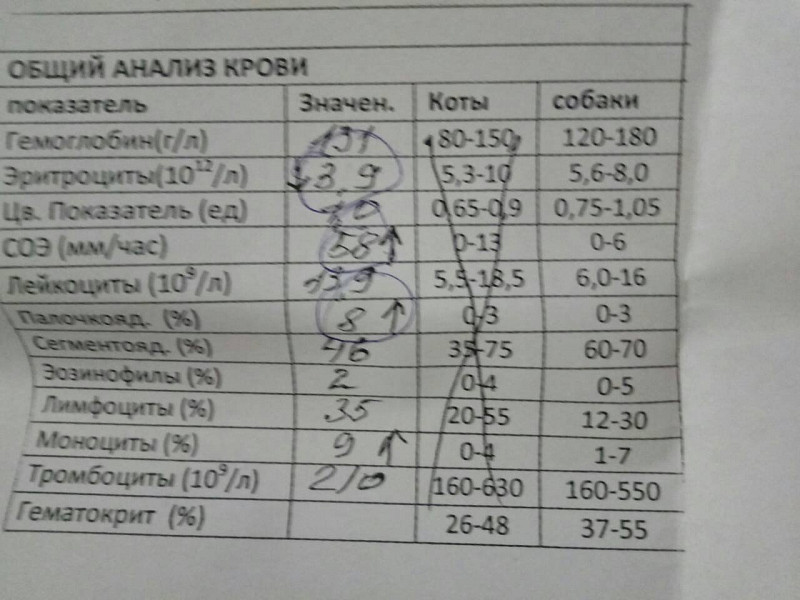 ОБЩИЙ АНАЛИЗ КРОВИ
показатель Значен. Коты собаки
Гемоглобин(г/л) 131 80-150 120-180
Эритроциты(10¹²/л) ↓3,9 5,3-10 5,6-8,0
Цв. Показатель (ед) 1,0 0,65-0,9 0,75-1,05
СОЭ (мм/час) 58↑ 0-13 0-6
Лейкоциты (10⁹/л) 5,5-18,5 6,0-16
Палочкояд. (%) 8↑ 0-3 0-3
Сегментояд. (%) 46 35-75 60-70
Эозинофилы (%) 2 0-4 0-5
Лимфоциты (%) 35 20-55 12-30
Моноциты (%) 9↑ 0-4 1-7
Тромбоциты (10⁹/л) 210 160-630 160-550
Гематокрит (%) 26-48 37-55